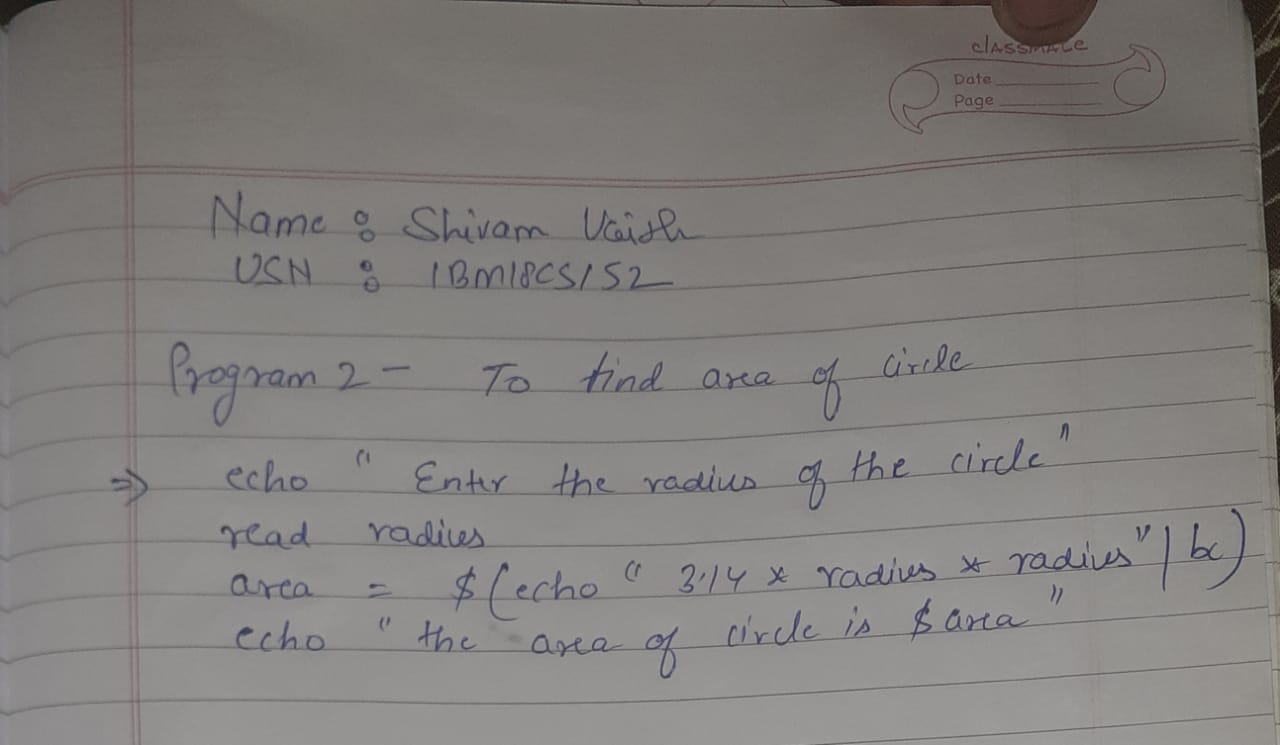 classmate
Date
Page
Name : Shivam Vaish
USN : 1BM18CS152
Program 2 - To find area of circle
⇒ echo "Enter the radius of the circle"
read radius
area = $(echo "3.14 * radius * radius" | bc)
echo "the area of circle is $area"